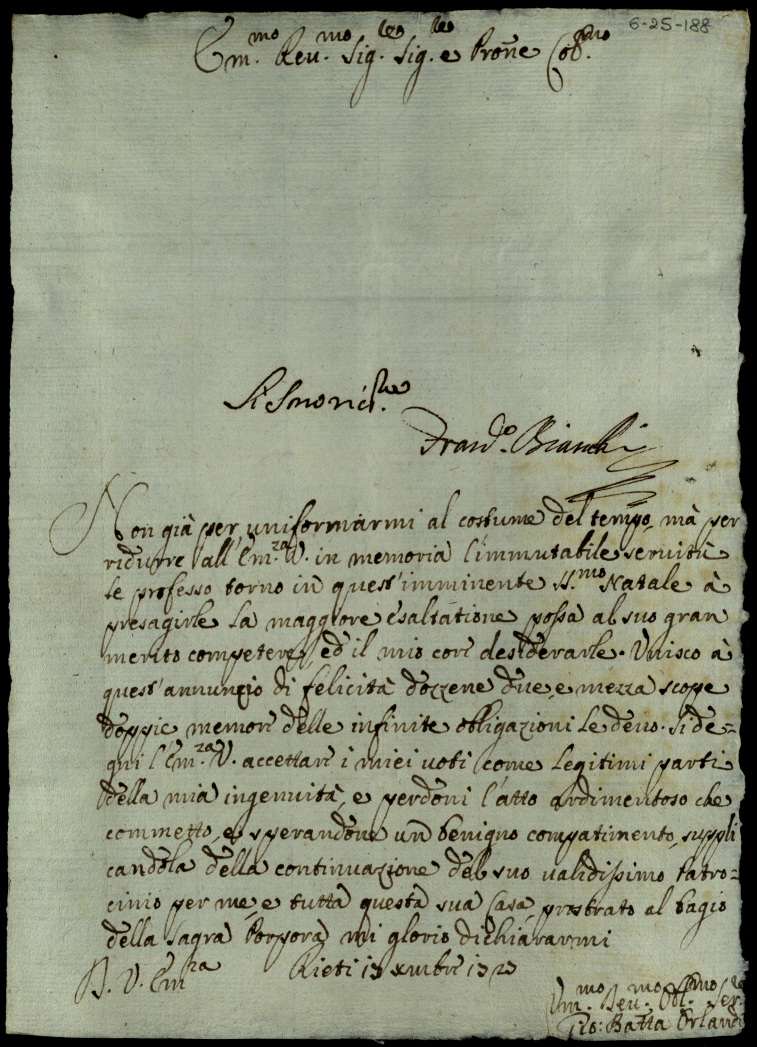 6-25-188
Em.mo Reu.mo Sig.re Sig.re e Prõne Col.mo
Franc.o Bianchi
Non già per uniformarmi al costume del tempo, mà per
ridurre all'Em.za V. in memoria l'immutabile seruitù
le professo torno in quest'imminente SS.mo Natale à
presagirle la maggiore esaltatione possa al suo gran
merito competere, ed il mio core desiderarle. Unisco à
quest'annunzio di felicità dozzene due, e mezza scope
doppie memore delle infinite obligazioni le deuo. Si de=
gni l'Em.za V. accettare i miei uoti come legitimi parti
della mia ingenuità, e perdoni l'atto ardimentoso che
commetto, e sperandone un benigno compatimento, suppli
candola della continuazione del suo ualidissimo Patro=
cinio per me, e tutta questa sua Casa, prostrato al bagio
della Sagra Porpora mi glorio dichiararmi
D. V. Em.za Rieti 13 Xmbre 1723
Um.mo Deu.mo Obl.mo Ser.re
Gio: Batta Orlandi